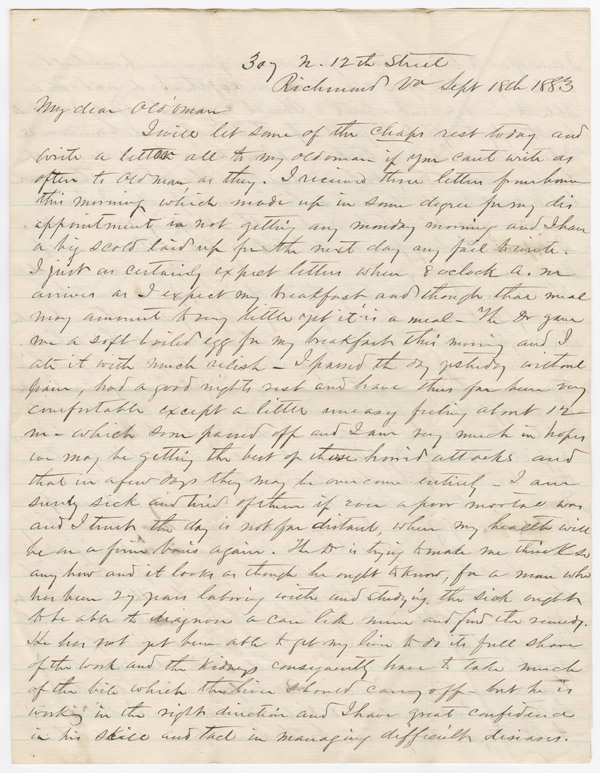 307 N. 12th Street
Richmond Va Sept 18th 1883
My dear Old'oman
I will let some of the chaps rest today and
write a letter all to my oldoman if you cant write as
often to Old man, as they. I received three letters from home
this morning, which made up in some degree for my dis
appointment in not getting any monday morning and I have
a big scold laid up for the next day any fail to write.
I just as certainly expect letters when 8 oclock A. m
arrives as I expect my breakfast and though that meal
may amount to very little yet it is a meal - The Dr gave
me a soft boiled egg for my breakfast this morning and I
ate it with much relish - I passed the day yesterday without
pain, had a good nights rest and have thus far been very
comfortable except a little uneasy feeling about 12
m - which soon passed off and I am very much in hopes
we may be getting the best of these horrid attacks and
that in a few days they may be overcome entirely - I am
surely sick and tired of them if ever a poor mortal was
and I trust the day is not far distant, when my health will
be on a firm basis again. The Dr is trying to make me think so
any how and it looks as though he ought to know, for a man who
has been 27 years laboring with and studying the sick ought
to be able to diagnose a case like mine and find the remedy.
He has not yet been able to get my liver to do its full share
of the work and the kidneys consequently have to take much
of the bile which the liver should carry off - but he is
working in the right direction and I have great confidence
in his skill and tact in managing difficult diseases.